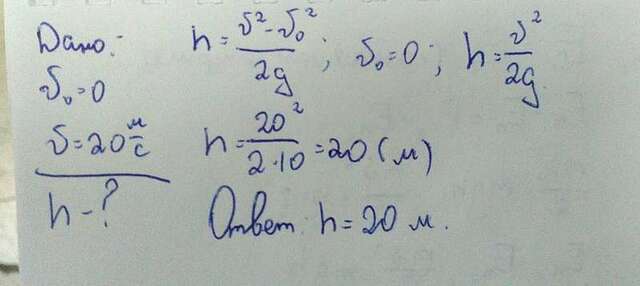 Дано:
υ₀=0
υ=20 м/с
h-?
h=(υ²-υ₀²)/2g; υ₀=0; h=υ²/2g.
h=20²/2·10=20(м)
Ответ: h=20 м.